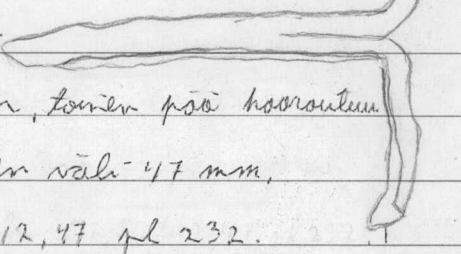 n, toinen pää haarautuu
n väli 47 mm.
12,47 pl 232.